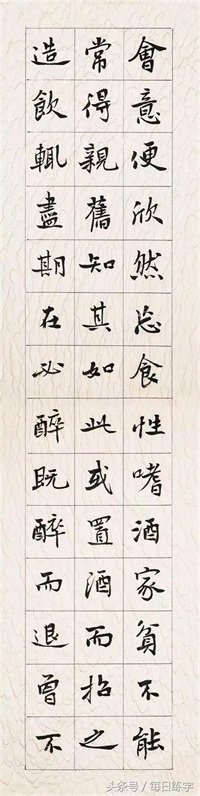 會意便欣然忘食性嗜酒家貧不能
常得親舊知其如此或置酒而招之
造飲輒盡期在必醉既醉而退曾不
头条号 / 每日练字